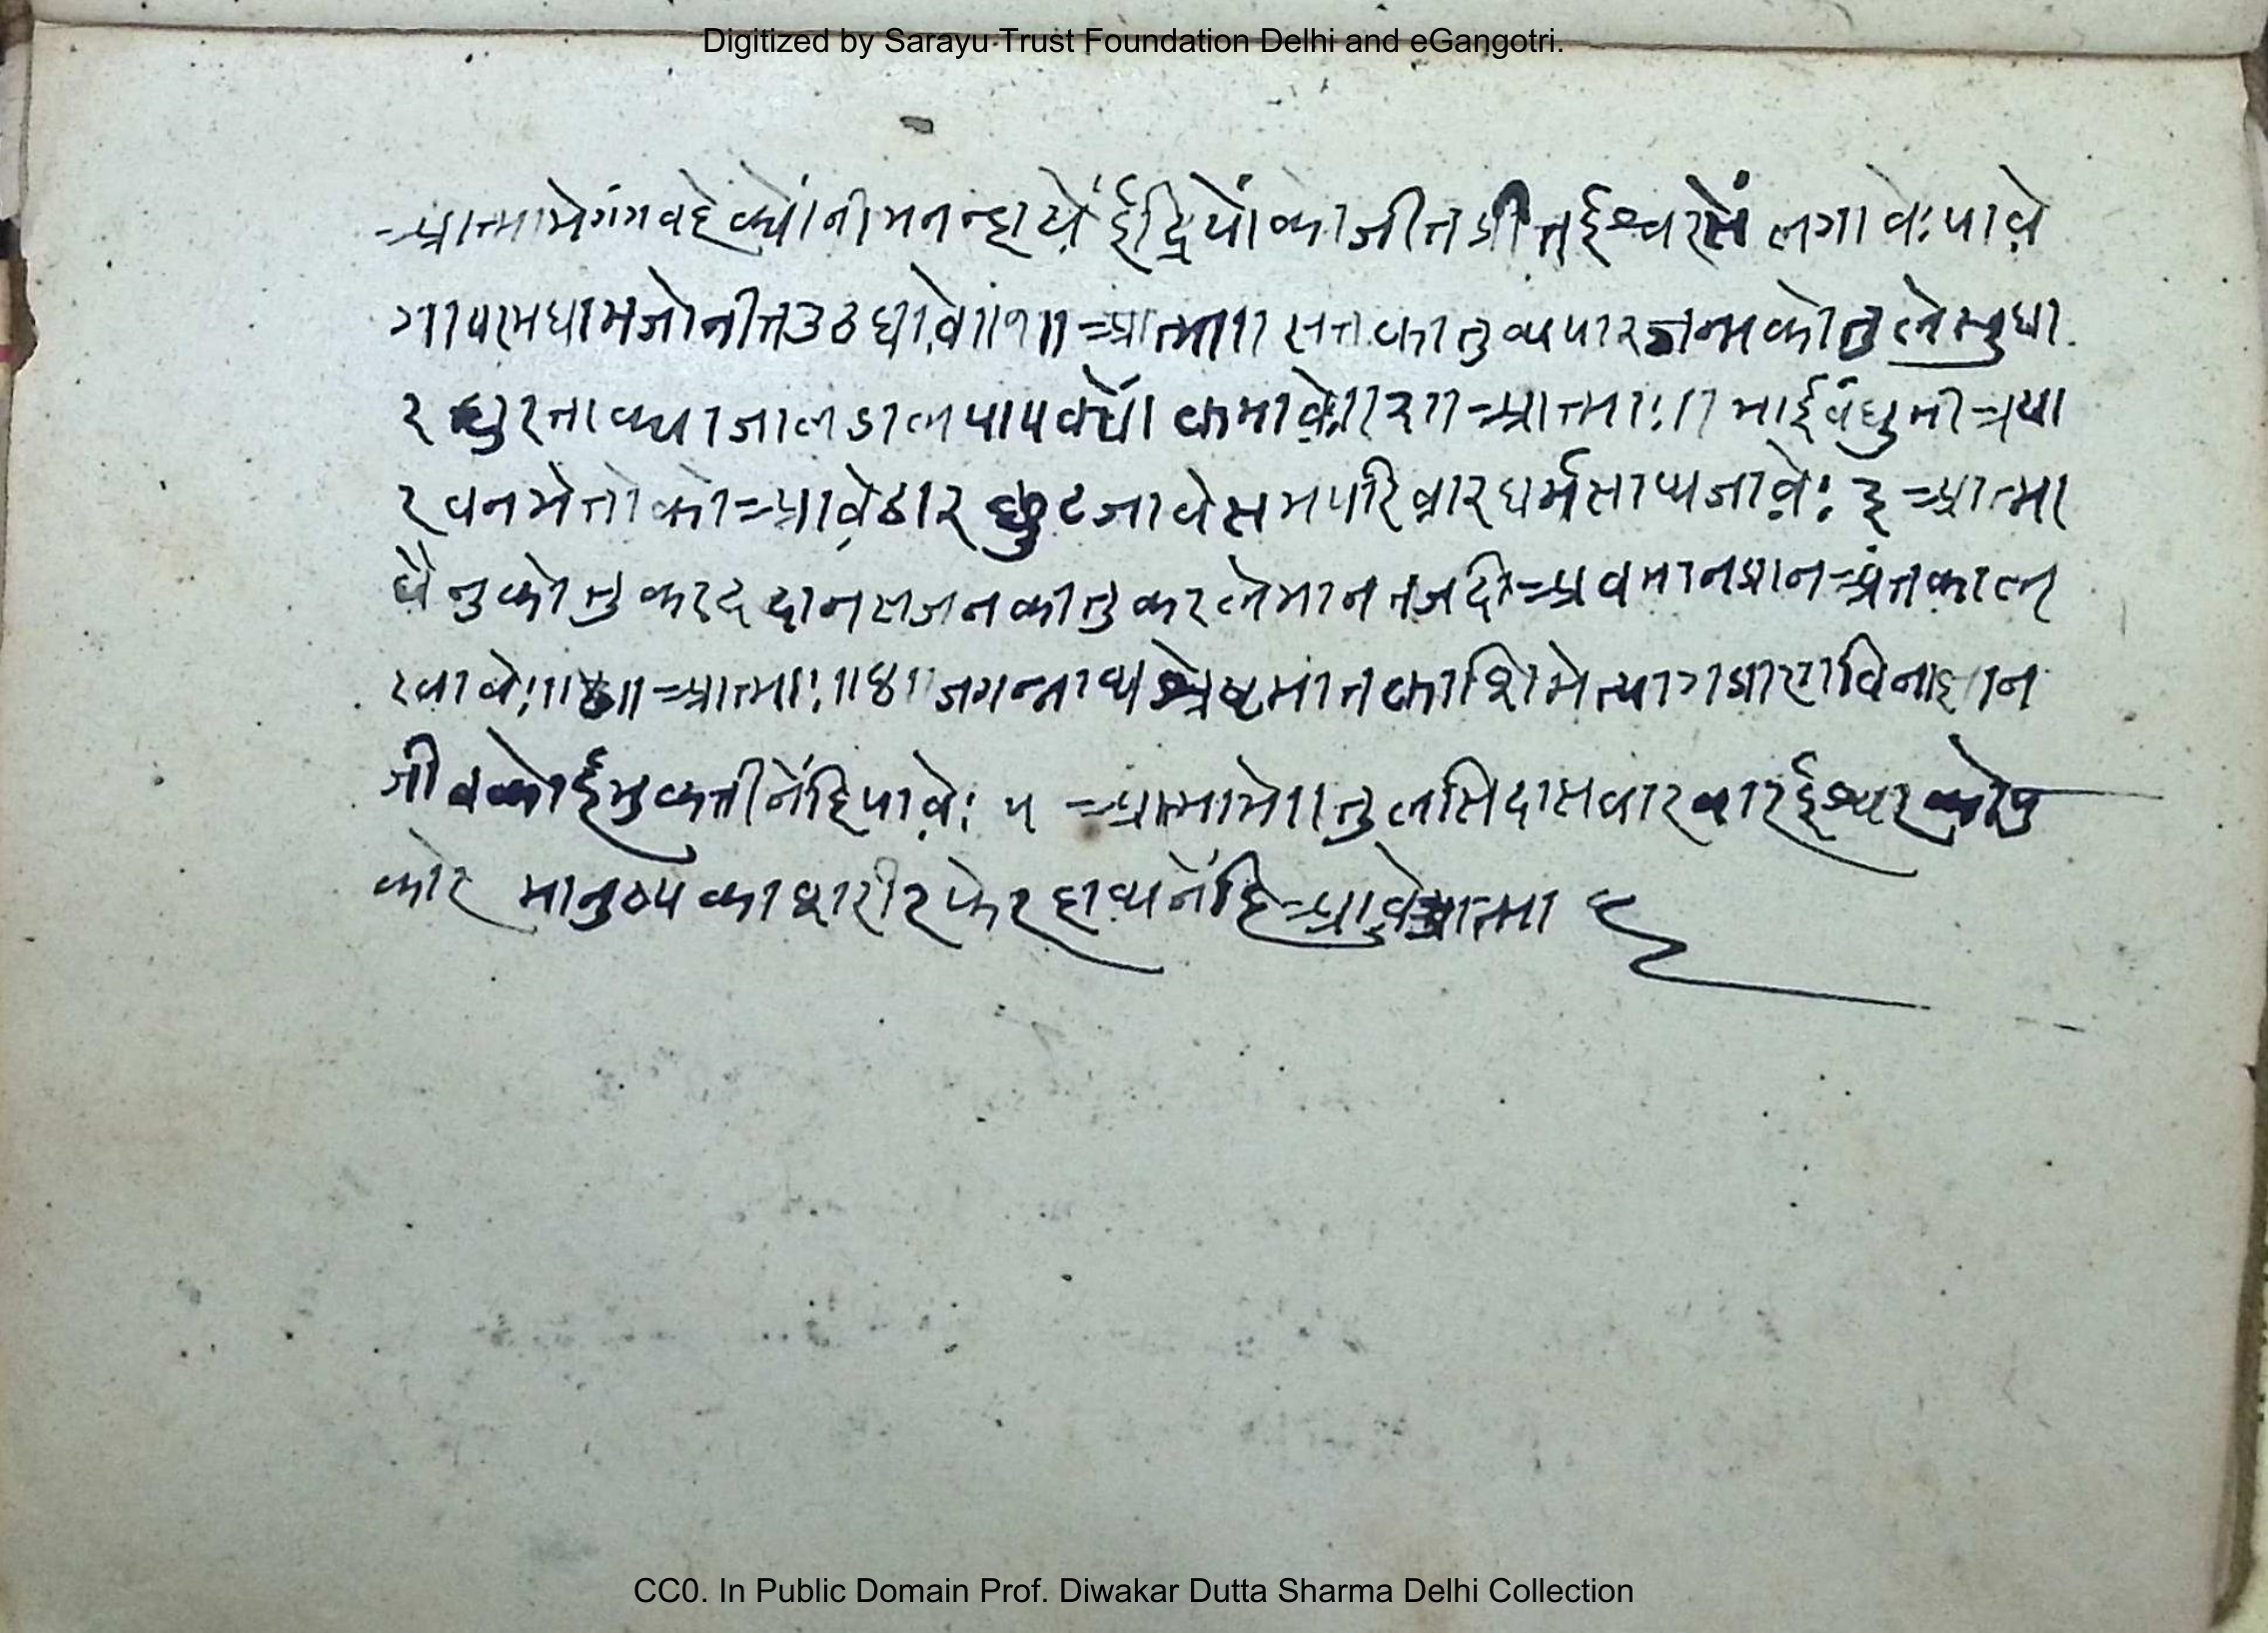 Digitized by Sarayu Trust Foundation Delhi and eGangotri.
आत्मामेगंगवहेक्योंनीमनन्हाये ईंद्रियोंकाजीत ईश्वरसें लगावेःपावे
गापरमधामजोनीतउठधावे॥१॥ आत्मा॥ सतकातुव्यपारजन्मकोतुलेसुधा
र क्याजालडालपापक्यों कमावे॥२॥ आत्माः॥ भाईवंधुमीत्रया
रवनमेतोकोआवेठार छुटजावेसभपरिवारधर्मसाथजावेः ३ आत्मा
धेनुकोतुकरददानसजनकातुकरलेमानतज अवमानप्रानअंतकाल
रवावेः॥४॥ आत्माः॥४॥ जगन्नाथश्रेष्टमातकाशिमेत्यागप्राणविनाज्ञान
जीवकोईमुकतीनेंहिपावेः ५ आत्मामे॥तुलसिदासवारवारईश्वरकोपु
कार मानुष्यकाशरीरफेरहाथनेंहिआवेआत्मा ६
CC0. In Public Domain Prof. Diwakar Dutta Sharma Delhi Collection